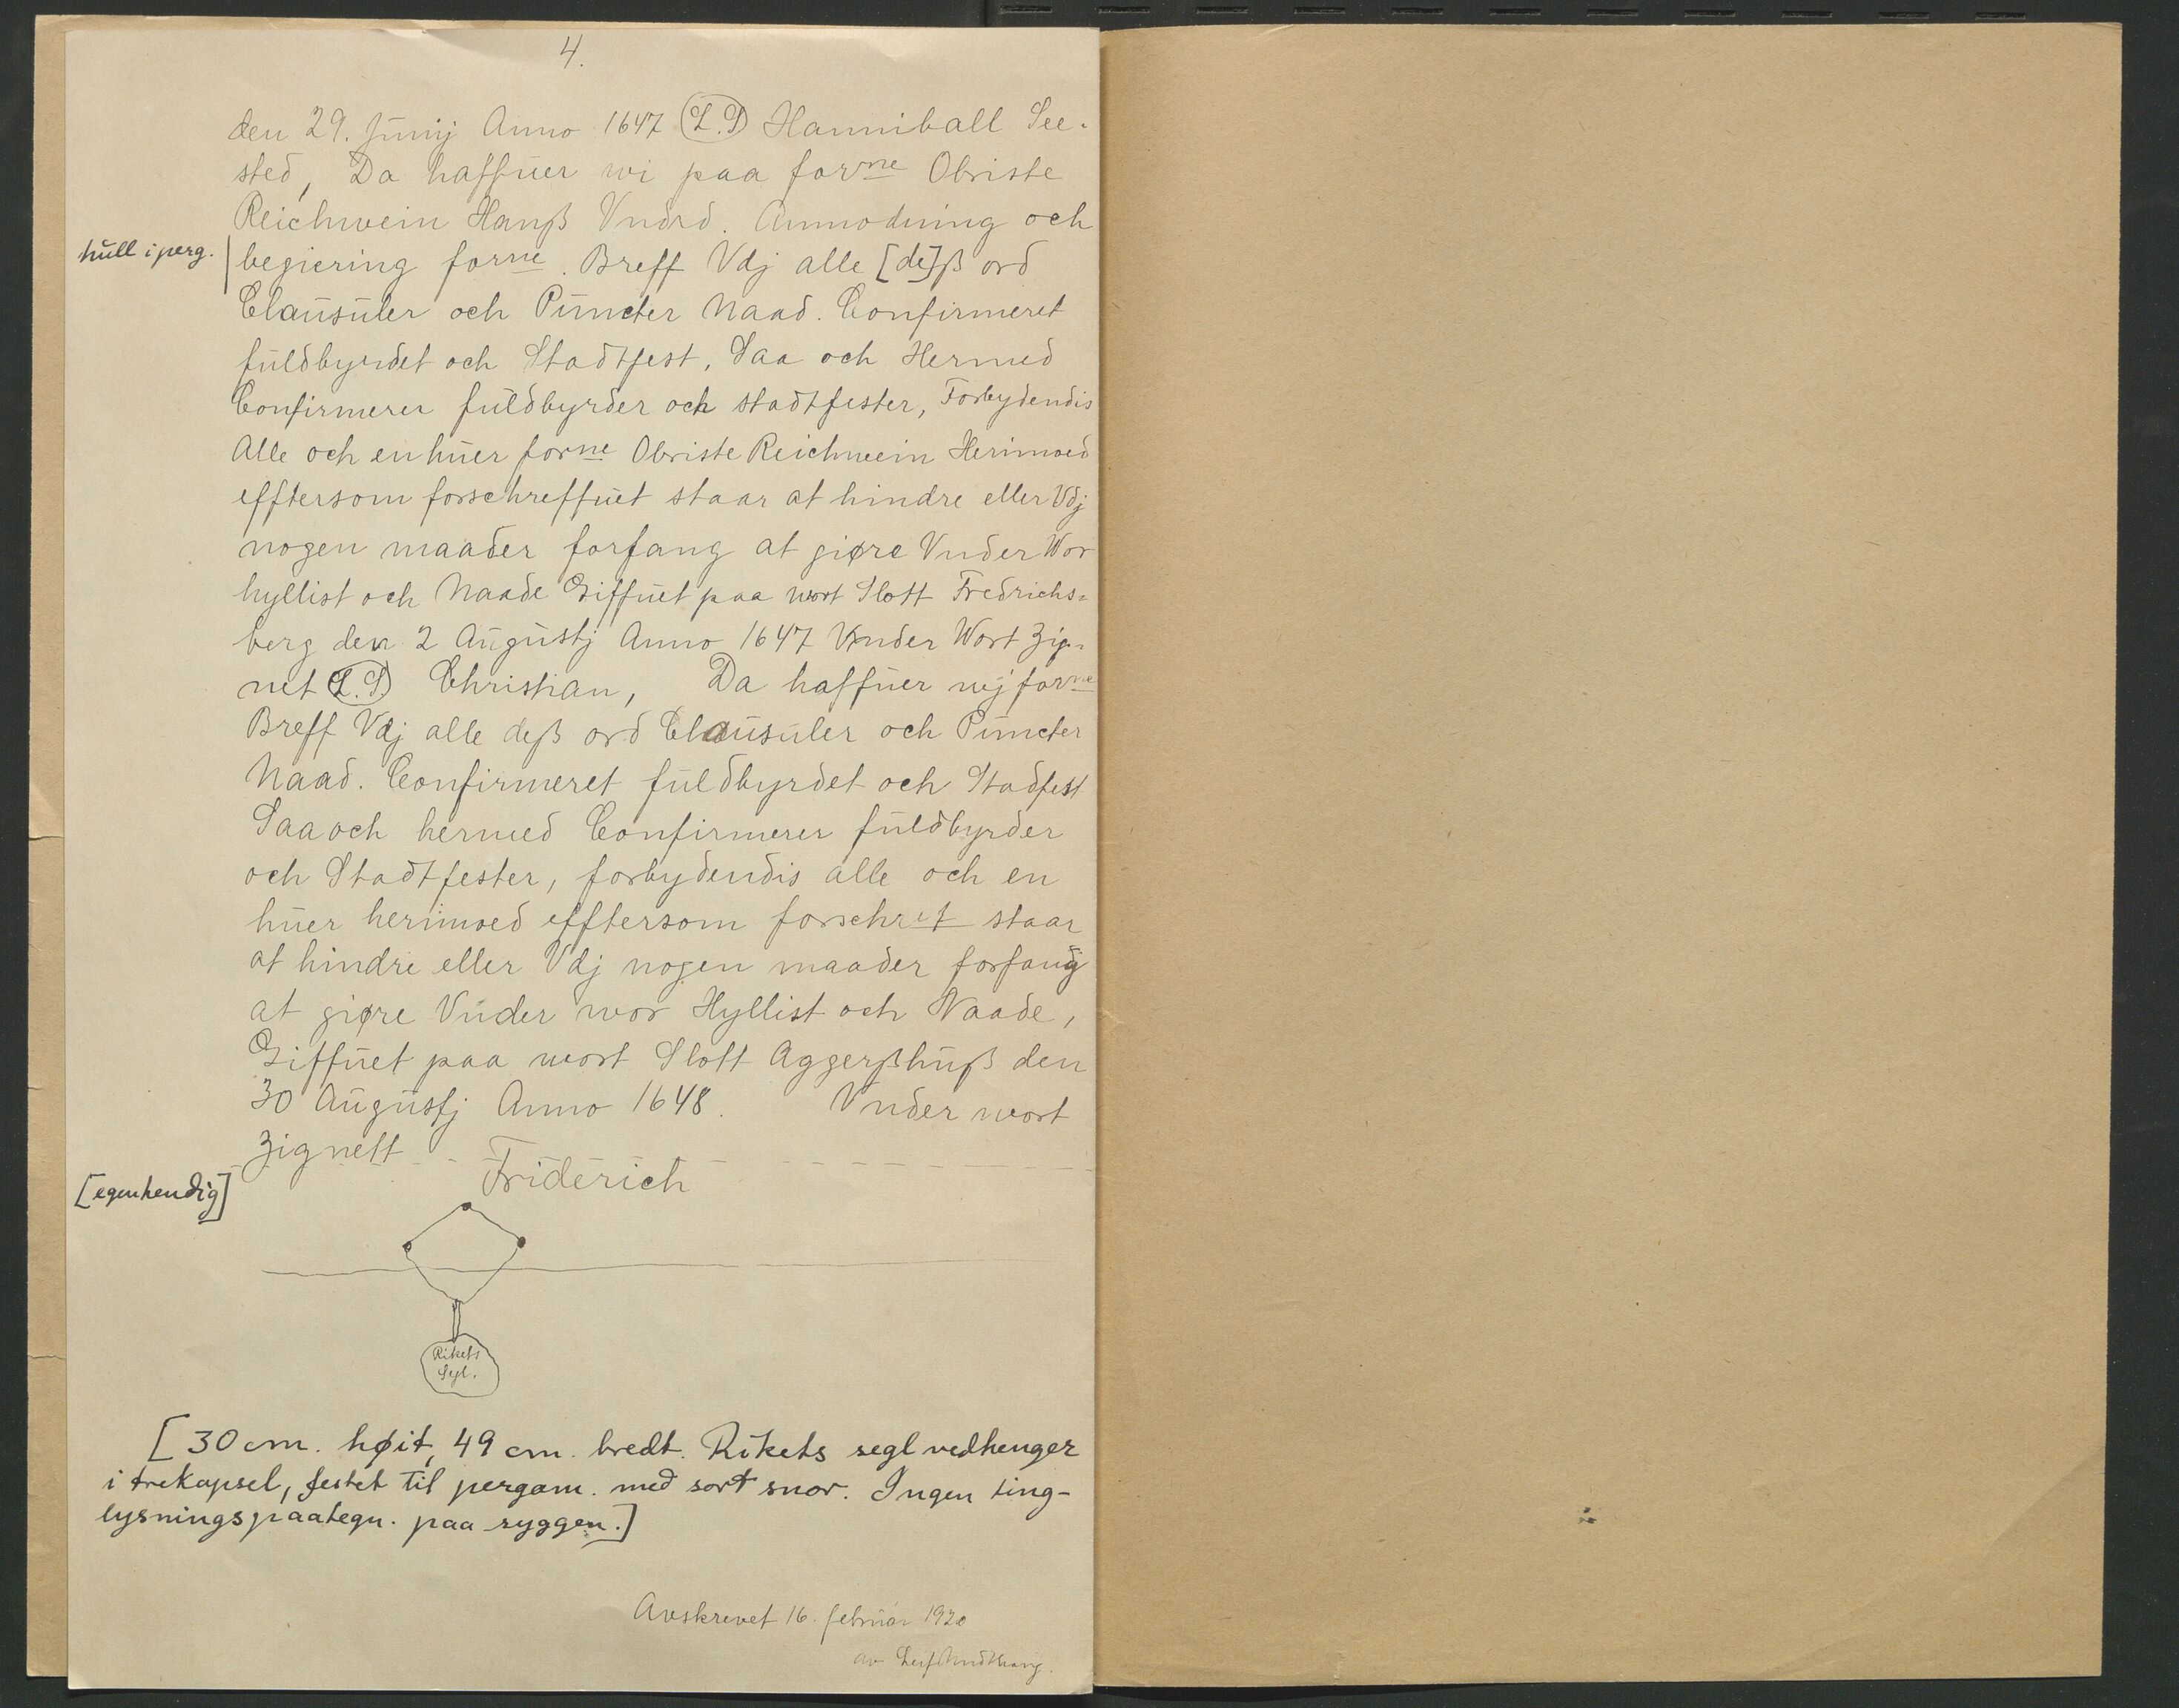 4.
den 29. Junij Anno 1647 (L.S) Hanniball See-
sted, Da haffuer wi paa forne Obriste
Reichwein Hanß Vndrd. Anmodning och
hull i perg. | begiering forne. Breff Vdj alle [de]ß ord
Clausuler och Puncter Naad. Confirmeret
fuldbyrdet och Stadtfest, Saa och Hermed
Confirmerer fuldbyrder och stadtfester, Forbydendis
Alle och en huer forne Obriste Reichwein Herimoed
efftersom forschreffuet staar at hindre eller Vdj
nogen maader forfang at giøre Vnder Wor
hyllist och Naade Giffuet paa wort Slott Fredrichs=
berg den 2 Augustj Anno 1647 Vnder Wort Zig-
net (L.S) Christian, Da haffuer wij forne
Breff Vdj alle deß ord Clausuler och Puncter
Naad. Confirmeret fuldbyrdet och Stadfest
Saa och hermed Confirmerer fuldbyrder
och Stadtfester, forbydendis alle och en
huer herimoed efftersom forschref staar
at hindre eller Vdj nogen maader forfang
at giøre Vnder wor Hyllist och Naade,
Giffuet paa wort Slott Aggerßhuß den
30 Augustj Anno 1648. Vnder wort
Zignett
Friderich
[egenhendig]
Rikets
Segl.
[30 cm. høit, 49 cm. bredt. Rikets segl vedhenger
i trekapsel, festet til pergam. med sort snor. Ingen ting-
lysningspaategn. paa ryggen.]
Avskrevet 16. februar 1920
av Leif